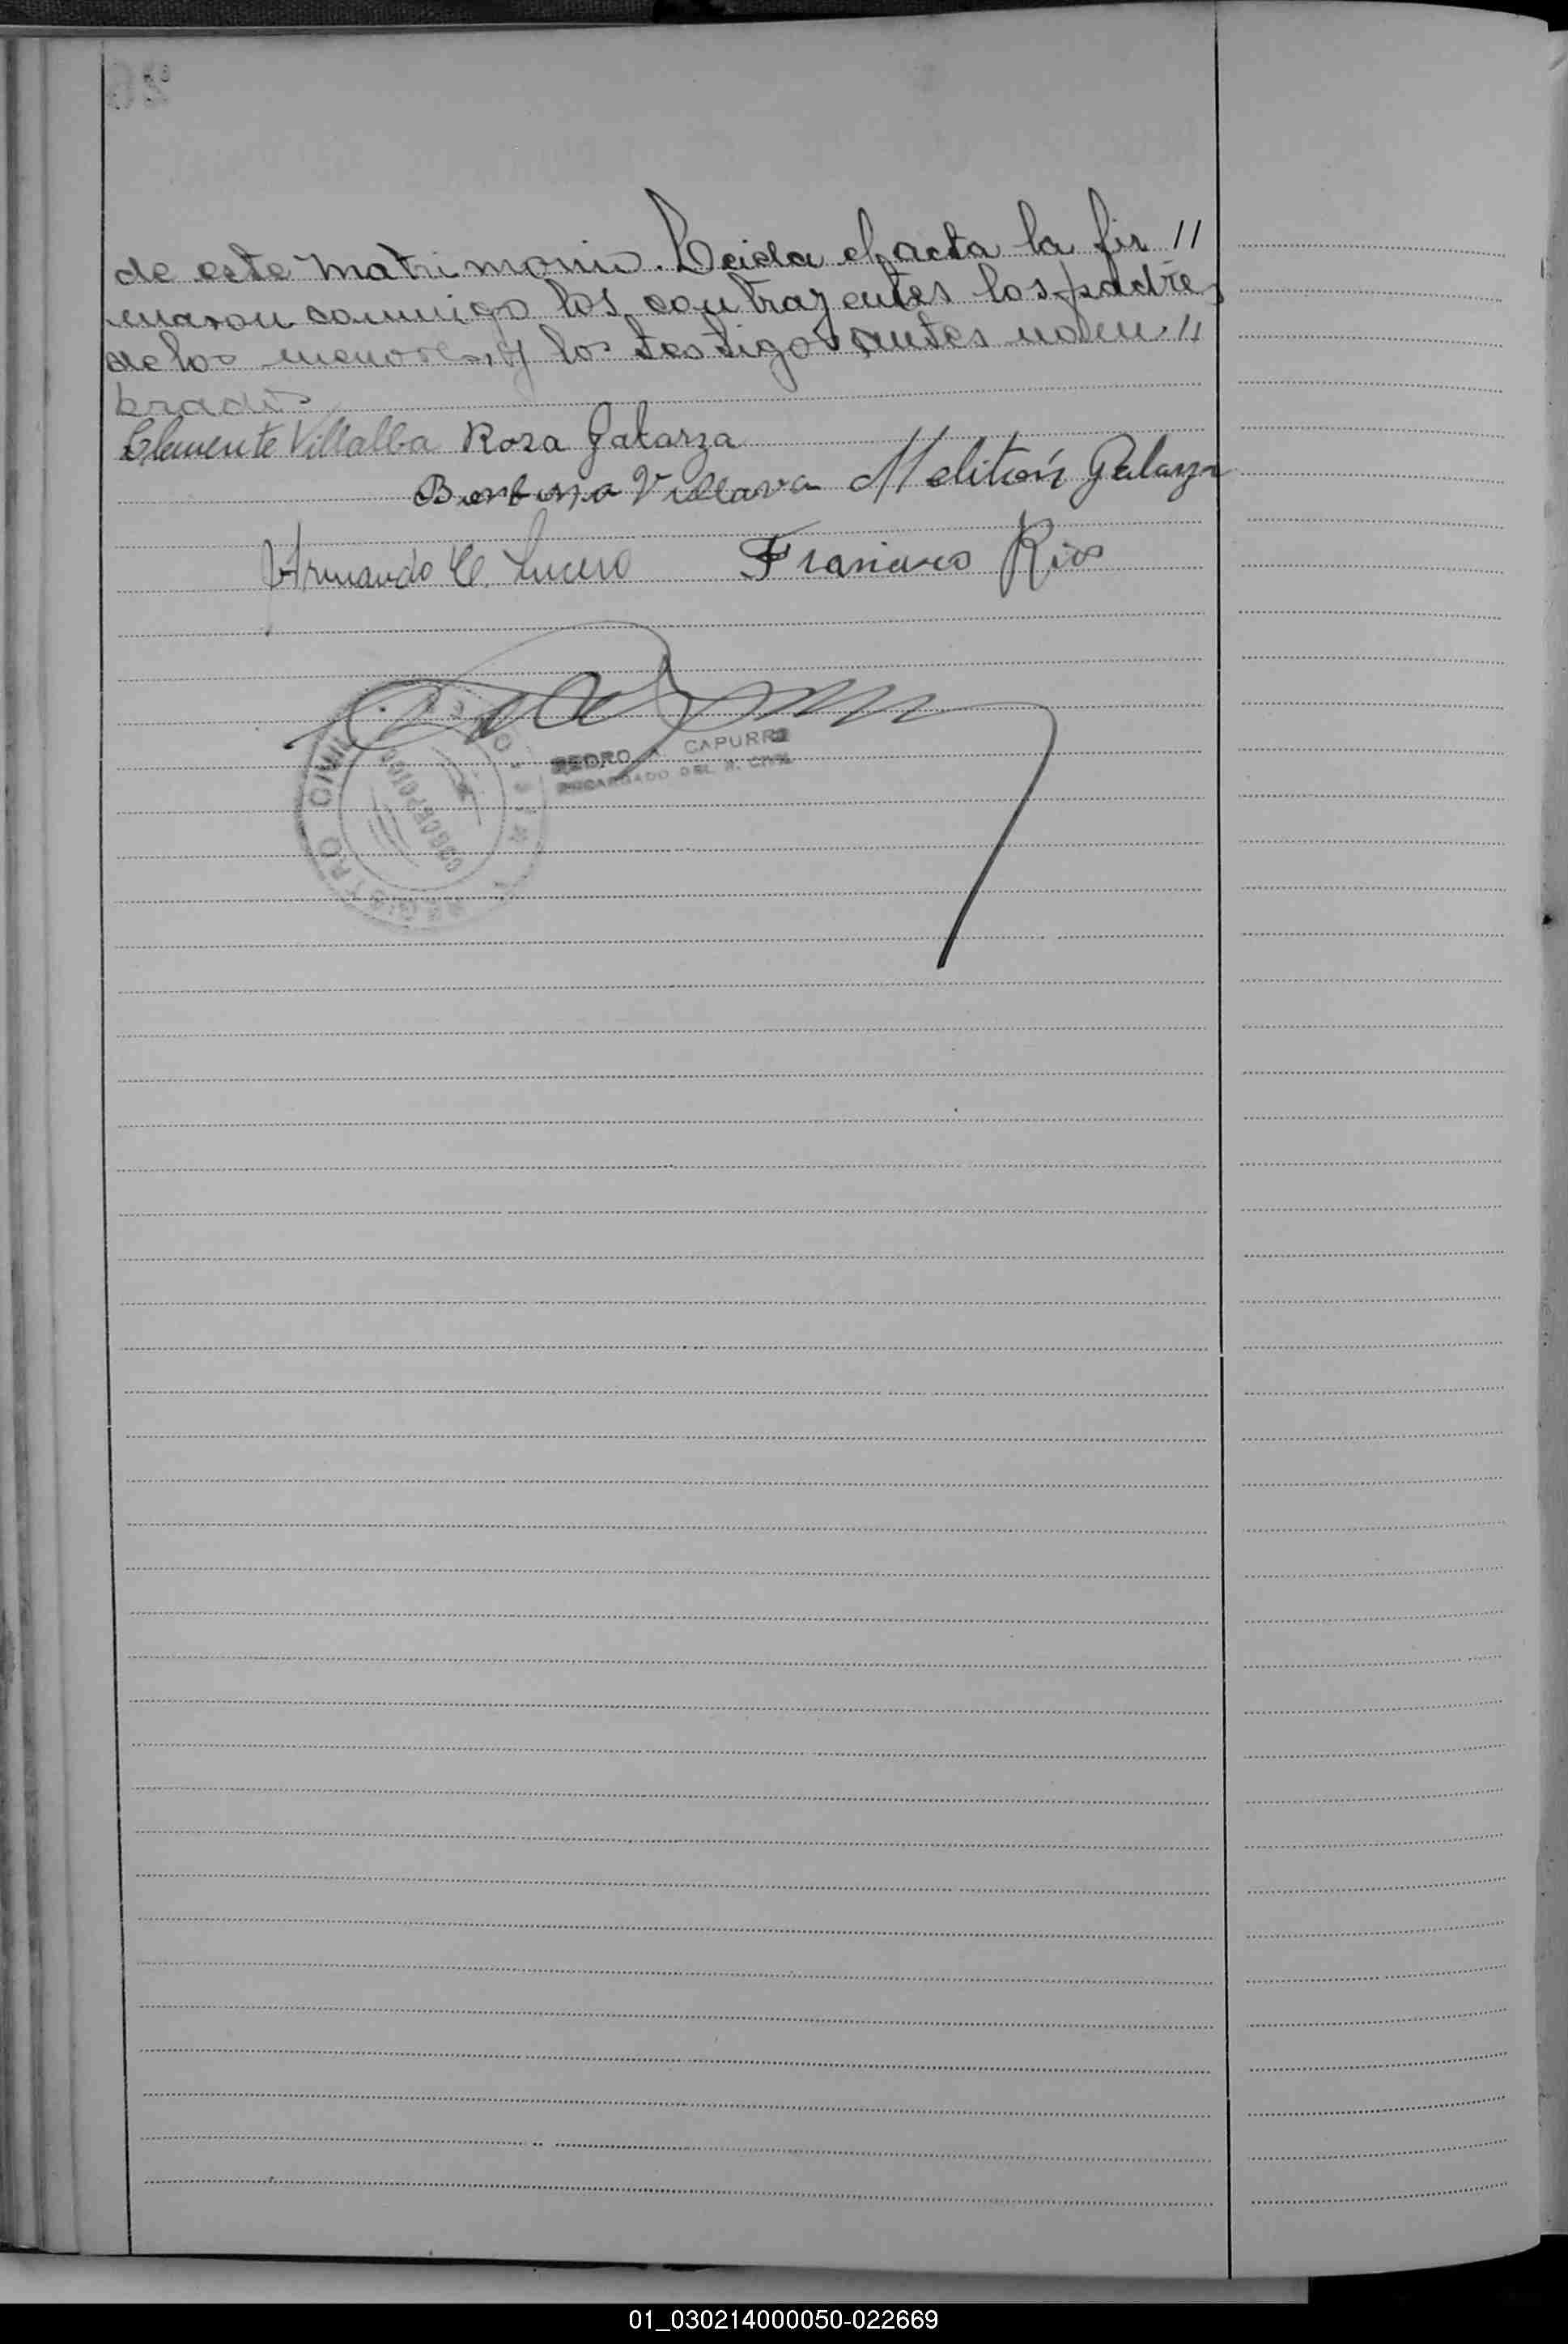 de este matrimonio. Leida el acta la fir //
maron conmigo los contrayentes los padres
de los menores, y los testigos antes nom //
brados
Clemente Villalba Rosa Galarza
Villava Melitón Galarza
Armando C. Lucero Francisco Rios
PEDRO A. CAPURRO
ENCARGADO DEL R. CIVIL
REGISTRO CIVIL
01_030214000050-022669